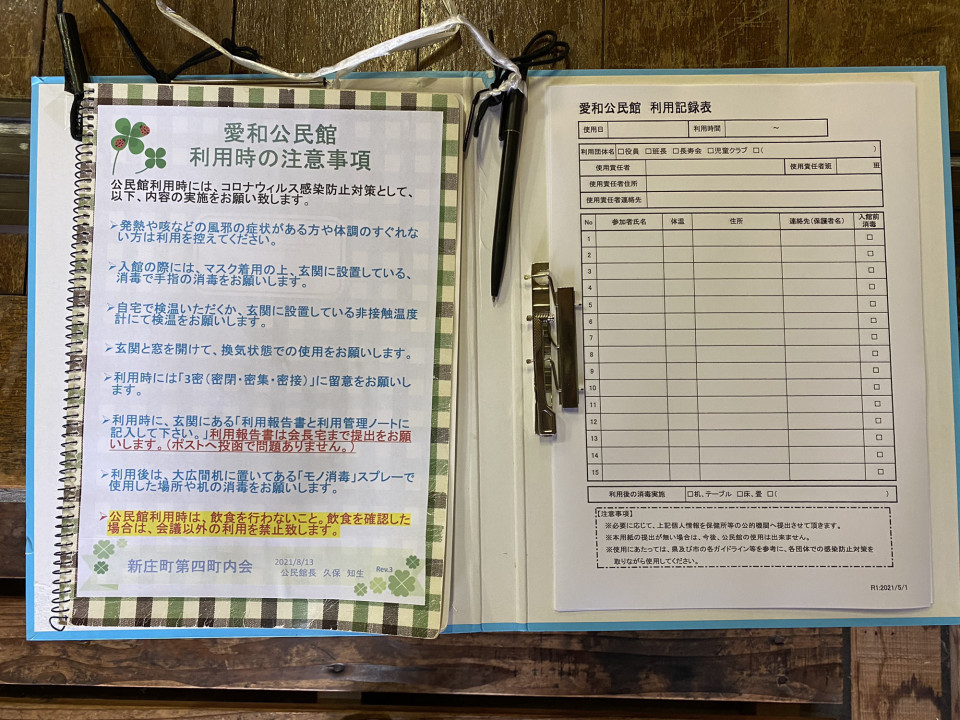 愛和公民館
利用時の注意事項
公民館利用時には、コロナウィルス感染防止対策として、
以下、内容の実施をお願い致します。
➢発熱や咳などの風邪の症状がある方や体調のすぐれな
い方は利用を控えてください。
➢入館の際には、マスク着用の上、玄関に設置している、
消毒で手指の消毒をお願いします。
➢自宅で検温いただくか、玄関に設置している非接触温度
計にて検温をお願いします。
➢玄関と窓を開けて、換気状態での使用をお願いします。
➢利用時には「3密(密閉・密集・密接)」に留意をお願いし
ます。
➢利用時に、玄関にある「利用報告書と利用管理ノートに
記入して下さい。」利用報告書は会長宅まで提出をお願
いします。(ポストへ投函で問題ありません。)
➢利用後は、大広間机に置いてある「モノ消毒」スプレーで
使用した場所や机の消毒をお願いします。
➢公民館利用時は、飲食を行わないこと。飲食を確認した
場合は、会議以外の利用を禁止致します。
新庄町第四町内会
2021/8/13
公民館長 久保 知生
Rev.3
愛和公民館 利用記録表
使用日 利用時間 ～
利用団体名 □役員 □班長 □長寿会 □児童クラブ □( )
使用責任者 使用責任者班 班
使用責任者住所
使用責任者連絡先
No 参加者氏名 体温 住所 連絡先(保護者名) 入館前消毒
1 □
2 □
3 □
4 □
5 □
6 □
7 □
8 □
9 □
10 □
11 □
12 □
13 □
14 □
15 □
利用後の消毒実施 □机、テーブル □床、畳 □( )
【注意事項】
※必要に応じて、上記個人情報を保健所等の公的機関へ提出させて頂きます。
※本用紙の提出が無い場合は、今後、公民館の使用は出来ません。
※使用にあたっては、県及び市の各ガイドライン等を参考に、各団体での感染防止対策を
取りながら使用してください。
R1:2021/5/1